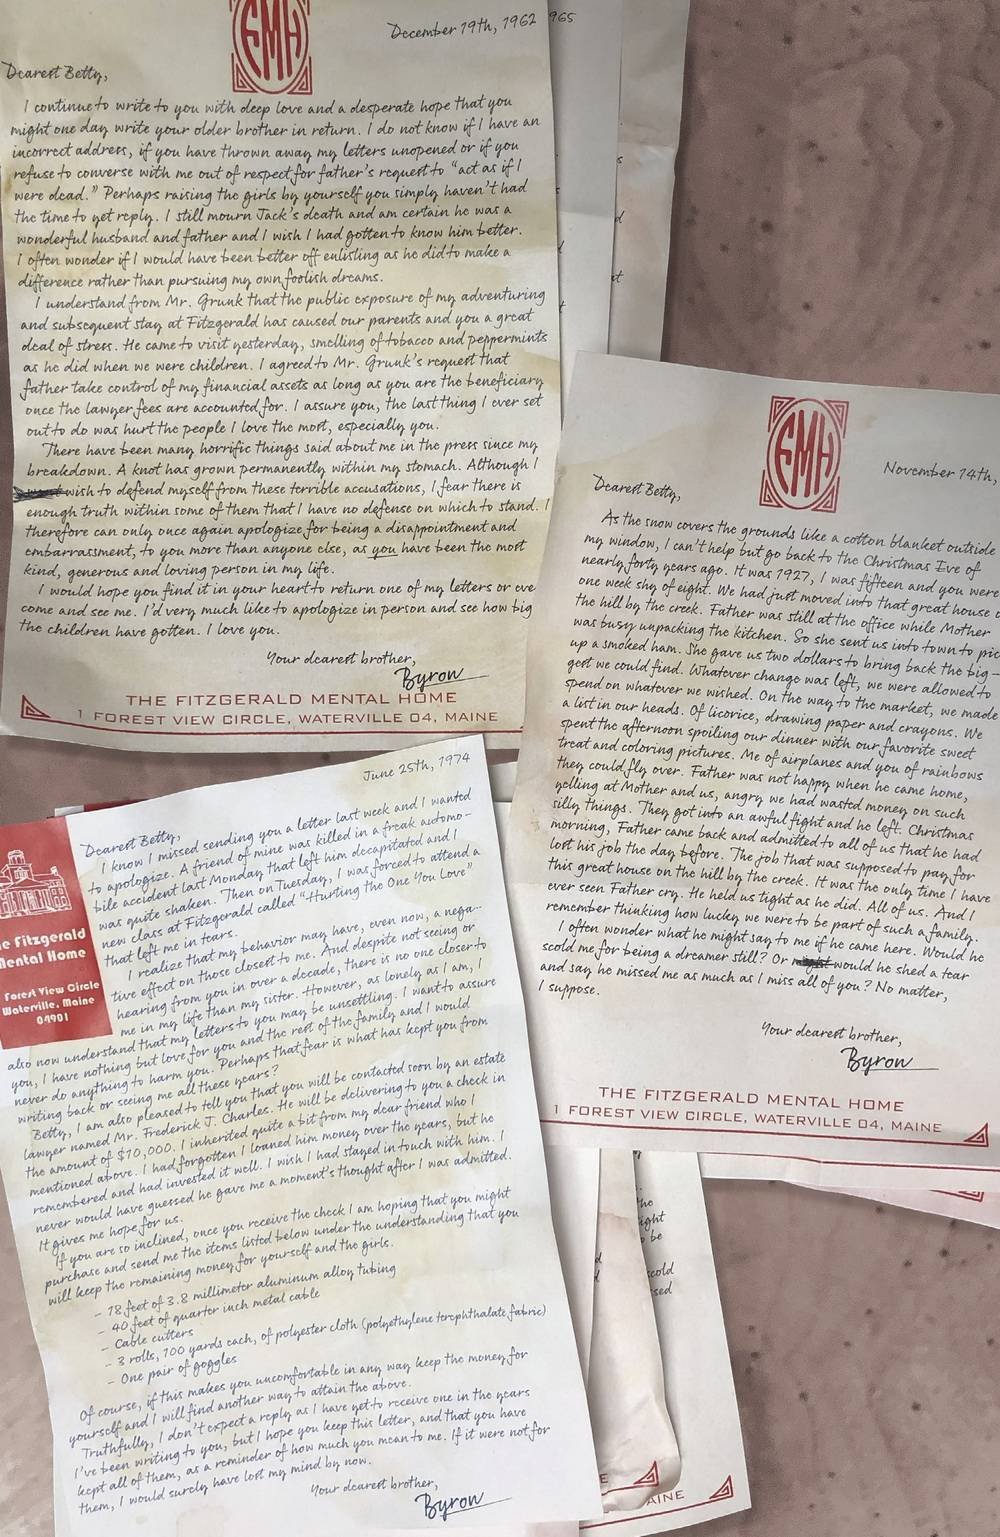 FMH
December 19th, 1962
965
Dearest Betty,
I continue to write to you with deep love and a desperate hope that you
might one day write your older brother in return. I do not know if I have an
incorrect address, if you have thrown away my letters unopened or if you
refuse to converse with me out of respect for father's request to "act as if I
were dead." Perhaps raising the girls by yourself you simply haven't had
the time to yet reply. I still mourn Jack's death and am certain he was a
wonderful husband and father and I wish I had gotten to know him better.
I often wonder if I would have been better off enlisting as he did to make a
difference rather than pursuing my own foolish dreams.
I understand from Mr. Grunk that the public exposure of my adventuring
and subsequent stay at Fitzgerald has caused our parents and you a great
deal of stress. He came to visit yesterday, smelling of tobacco and peppermints
as he did when we were children. I agreed to Mr. Grunk's request that
father take control of my financial assets as long as you are the beneficiary
once the lawyer fees are accounted for. I assure you, the last thing I ever set
out to do was hurt the people I love the most, especially you.
There have been many horrific things said about me in the press since my
breakdown. A knot has grown permanently within my stomach. Although I
wish to defend myself from these terrible accusations, I fear there is
enough truth within some of them that I have no defense on which to stand. I
therefore can only once again apologize for being a disappointment and
embarrassment, to you more than anyone else, as you have been the most
kind, generous and loving person in my life.
I would hope you find it in your heart to return one of my letters or eve
come and see me. I'd very much like to apologize in person and see how big
the children have gotten. I love you.
Your dearest brother,
Byron
THE FITZGERALD MENTAL HOME
1 FOREST VIEW CIRCLE, WATERVILLE 04, MAINE
FMH
November 14th,
Dearest Betty,
As the snow covers the grounds like a cotton blanket outside
my window, I can't help but go back to the Christmas Eve of
nearly forty years ago. It was 1927, I was fifteen and you were
one week shy of eight. We had just moved into that great house o
the hill by the creek. Father was still at the office while Mother
was busy unpacking the kitchen. So she sent us into town to pic
up a smoked ham. She gave us two dollars to bring back the big-
gest we could find. Whatever change was left, we were allowed to
spend on whatever we wished. On the way to the market, we made
a list in our heads. Of licorice, drawing paper and crayons. We
spent the afternoon spoiling our dinner with our favorite sweet
treat and coloring pictures. Me of airplanes and you of rainbows
they could fly over. Father was not happy when he came home,
yelling at Mother and us, angry we had wasted money on such
silly things. They got into an awful fight and he left. Christmas
morning, Father came back and admitted to all of us that he had
lost his job the day before. The job that was supposed to pay for
this great house on the hill by the creek. It was the only time I have
ever seen Father cry. He held us tight as he did. All of us. And I
remember thinking how lucky we were to be part of such a family.
I often wonder what he might say to me if he came here. Would he
scold me for being a dreamer still? Or would he shed a tear
and say he missed me as much as I miss all of you? No matter,
I suppose.
Your dearest brother,
Byron
THE FITZGERALD MENTAL HOME
1 FOREST VIEW CIRCLE, WATERVILLE 04, MAINE
June 25th, 1974
he Fitzgerald
Mental Home
Forest View Circle
Waterville, Maine
04901
Dearest Betty,
I know I missed sending you a letter last week and I wanted
to apologize. A friend of mine was killed in a freak automo-
bile accident last Monday that left him decapitated and I
was quite shaken. Then on Tuesday, I was forced to attend a
new class at Fitzgerald called "Hurting the One You Love"
that left me in tears.
I realize that my behavior may have, even now, a nega-
tive effect on those closest to me. And despite not seeing or
hearing from you in over a decade, there is no one closer to
me in my life than my sister. However, as lonely as I am, I
also now understand that my letters to you may be unsettling. I want to assure
you, I have nothing but love for you and the rest of the family and I would
never do anything to harm you. Perhaps that fear is what has kept you from
writing back or seeing me all these years?
Betty, I am also pleased to tell you that you will be contacted soon by an estate
lawyer named Mr. Frederick J. Charles. He will be delivering to you a check in
the amount of $10,000. I inherited quite a bit from my dear friend who I
mentioned above. I had forgotten I loaned him money over the years, but he
remembered and had invested it well. I wish I had stayed in touch with him. I
never would have guessed he gave me a moment's thought after I was admitted.
It gives me hope for us.
If you are so inclined, once you receive the check I am hoping that you might
purchase and send me the items listed below under the understanding that you
will keep the remaining money for yourself and the girls.
- 18 feet of 3.8 millimeter aluminum alloy tubing
- 40 feet of quarter inch metal cable
- Cable cutters
- 3 rolls, 100 yards each, of polyester cloth (polyethylene terephthalate fabric)
- One pair of goggles
Of course, if this makes you uncomfortable in any way keep the money for
yourself and I will find another way to attain the above.
Truthfully, I don't expect a reply as I have yet to receive one in the years
I've been writing to you, but I hope you keep this letter, and that you have
kept all of them, as a reminder of how much you mean to me. If it were not for
them, I would surely have lost my mind by now.
Your dearest brother,
Byron
AINE